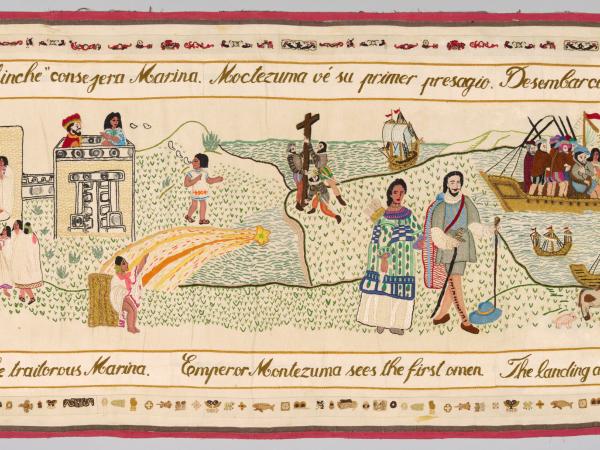 consejera Marina. Moctezuma vé su primer presagio.
traitorous Marina. Emperor Montezuma sees the first omen The landing